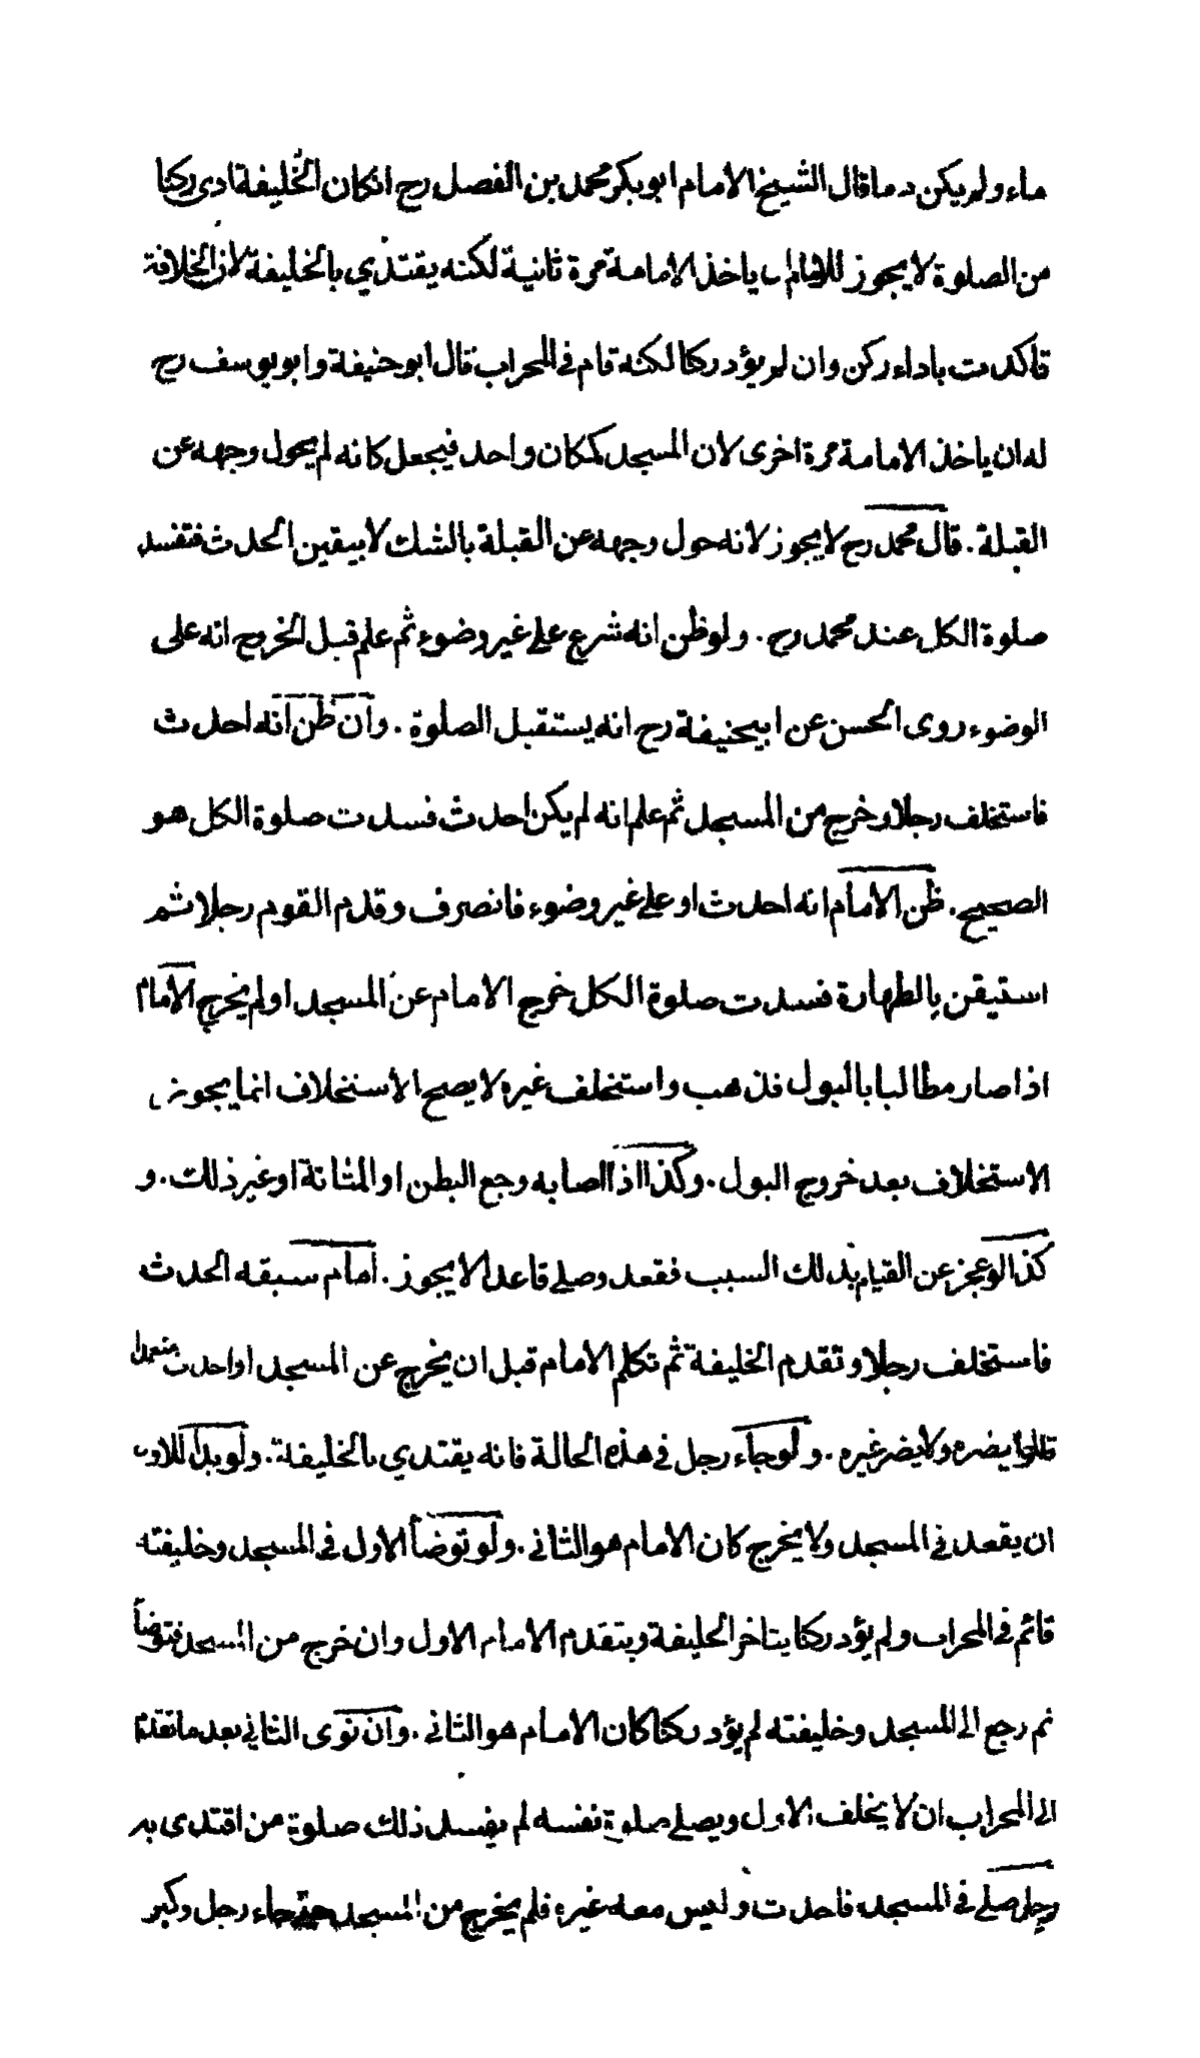 ماء ولم يكن دما قال الشيخ الامام ابو بكر محمد بن الفضل رح انكان الخليفة ادى ركنا
من الصلوة لا يجوز للامام ان ياخذ الامامة مرة ثانية لكنه يقتدي بالخليفة لان الخلافة
تاكدت باداء ركن وان لم يؤد ركنا لكنه قام في المحراب قال ابو حنيفة وابو يوسف رح
له ان ياخذ الامامة مرة اخرى لان المسجد كمكان واحد فيجعل كانه لم يحول وجهه عن
القبلة . قال محمد رح لا يجوز لانه حول وجهه عن القبلة بالشك لا بيقين الحدث فتفسد
صلوة الكل عند محمد رح . ولو ظن انه شرع على غير وضوء ثم علم قبل الخروج انه على
الوضوء روى الحسن عن ابيحنيفة رح انه يستقبل الصلوة . وان ظن انه احدث
فاستخلف رجلا وخرج من المسجد ثم علم انه لم يكن احدث فسدت صلوة الكل هو
الصحيح . ظن الامام انه احدث او على غير وضوء فانصرف وقدم القوم رجلا ثم
استيقن بالطهارة فسدت صلوة الكل خرج الامام عن المسجد او لم يخرج الامام
اذا صار مطالبا بالبول فذهب واستخلف غيره لا يصح الاستخلاف انما يجوز
الاستخلاف بعد خروج البول . وكذا اذا اصابه وجع البطن او المثانة او غير ذلك . و
كذا لو عجز عن القيام بذلك السبب فقعد وصلى قاعدا لا يجوز . امام سبقه الحدث
فاستخلف رجلا وتقدم الخليفة ثم تكلم الامام قبل ان يخرج عن المسجد او احدث متعمدا
قالوا يضره ولا يضر غيره . ولو جاء رجل في هذه الحالة فانه يقتدي بالخليفة . ولو بدا للاول
ان يقعد في المسجد ولا يخرج كان الامام هو الثاني . ولو توضأ الاول في المسجد وخليفته
قائم في المحراب ولم يؤد ركنا يتاخر الخليفة ويتقدم الامام الاول وان خرج من المسجد فتوضأ
ثم رجع الى المسجد وخليفته لم يؤد ركنا كان الامام هو الثاني . وان نوى الثاني بعد ما تقدم
الى المحراب ان لا يخلف الاول ويصلي صلوة نفسه لم يفسد ذلك صلوة من اقتدى به
رجل صلى في المسجد فاحدث وليس معه غيره فلم يخرج من المسجد حتى جاء رجل وكبر